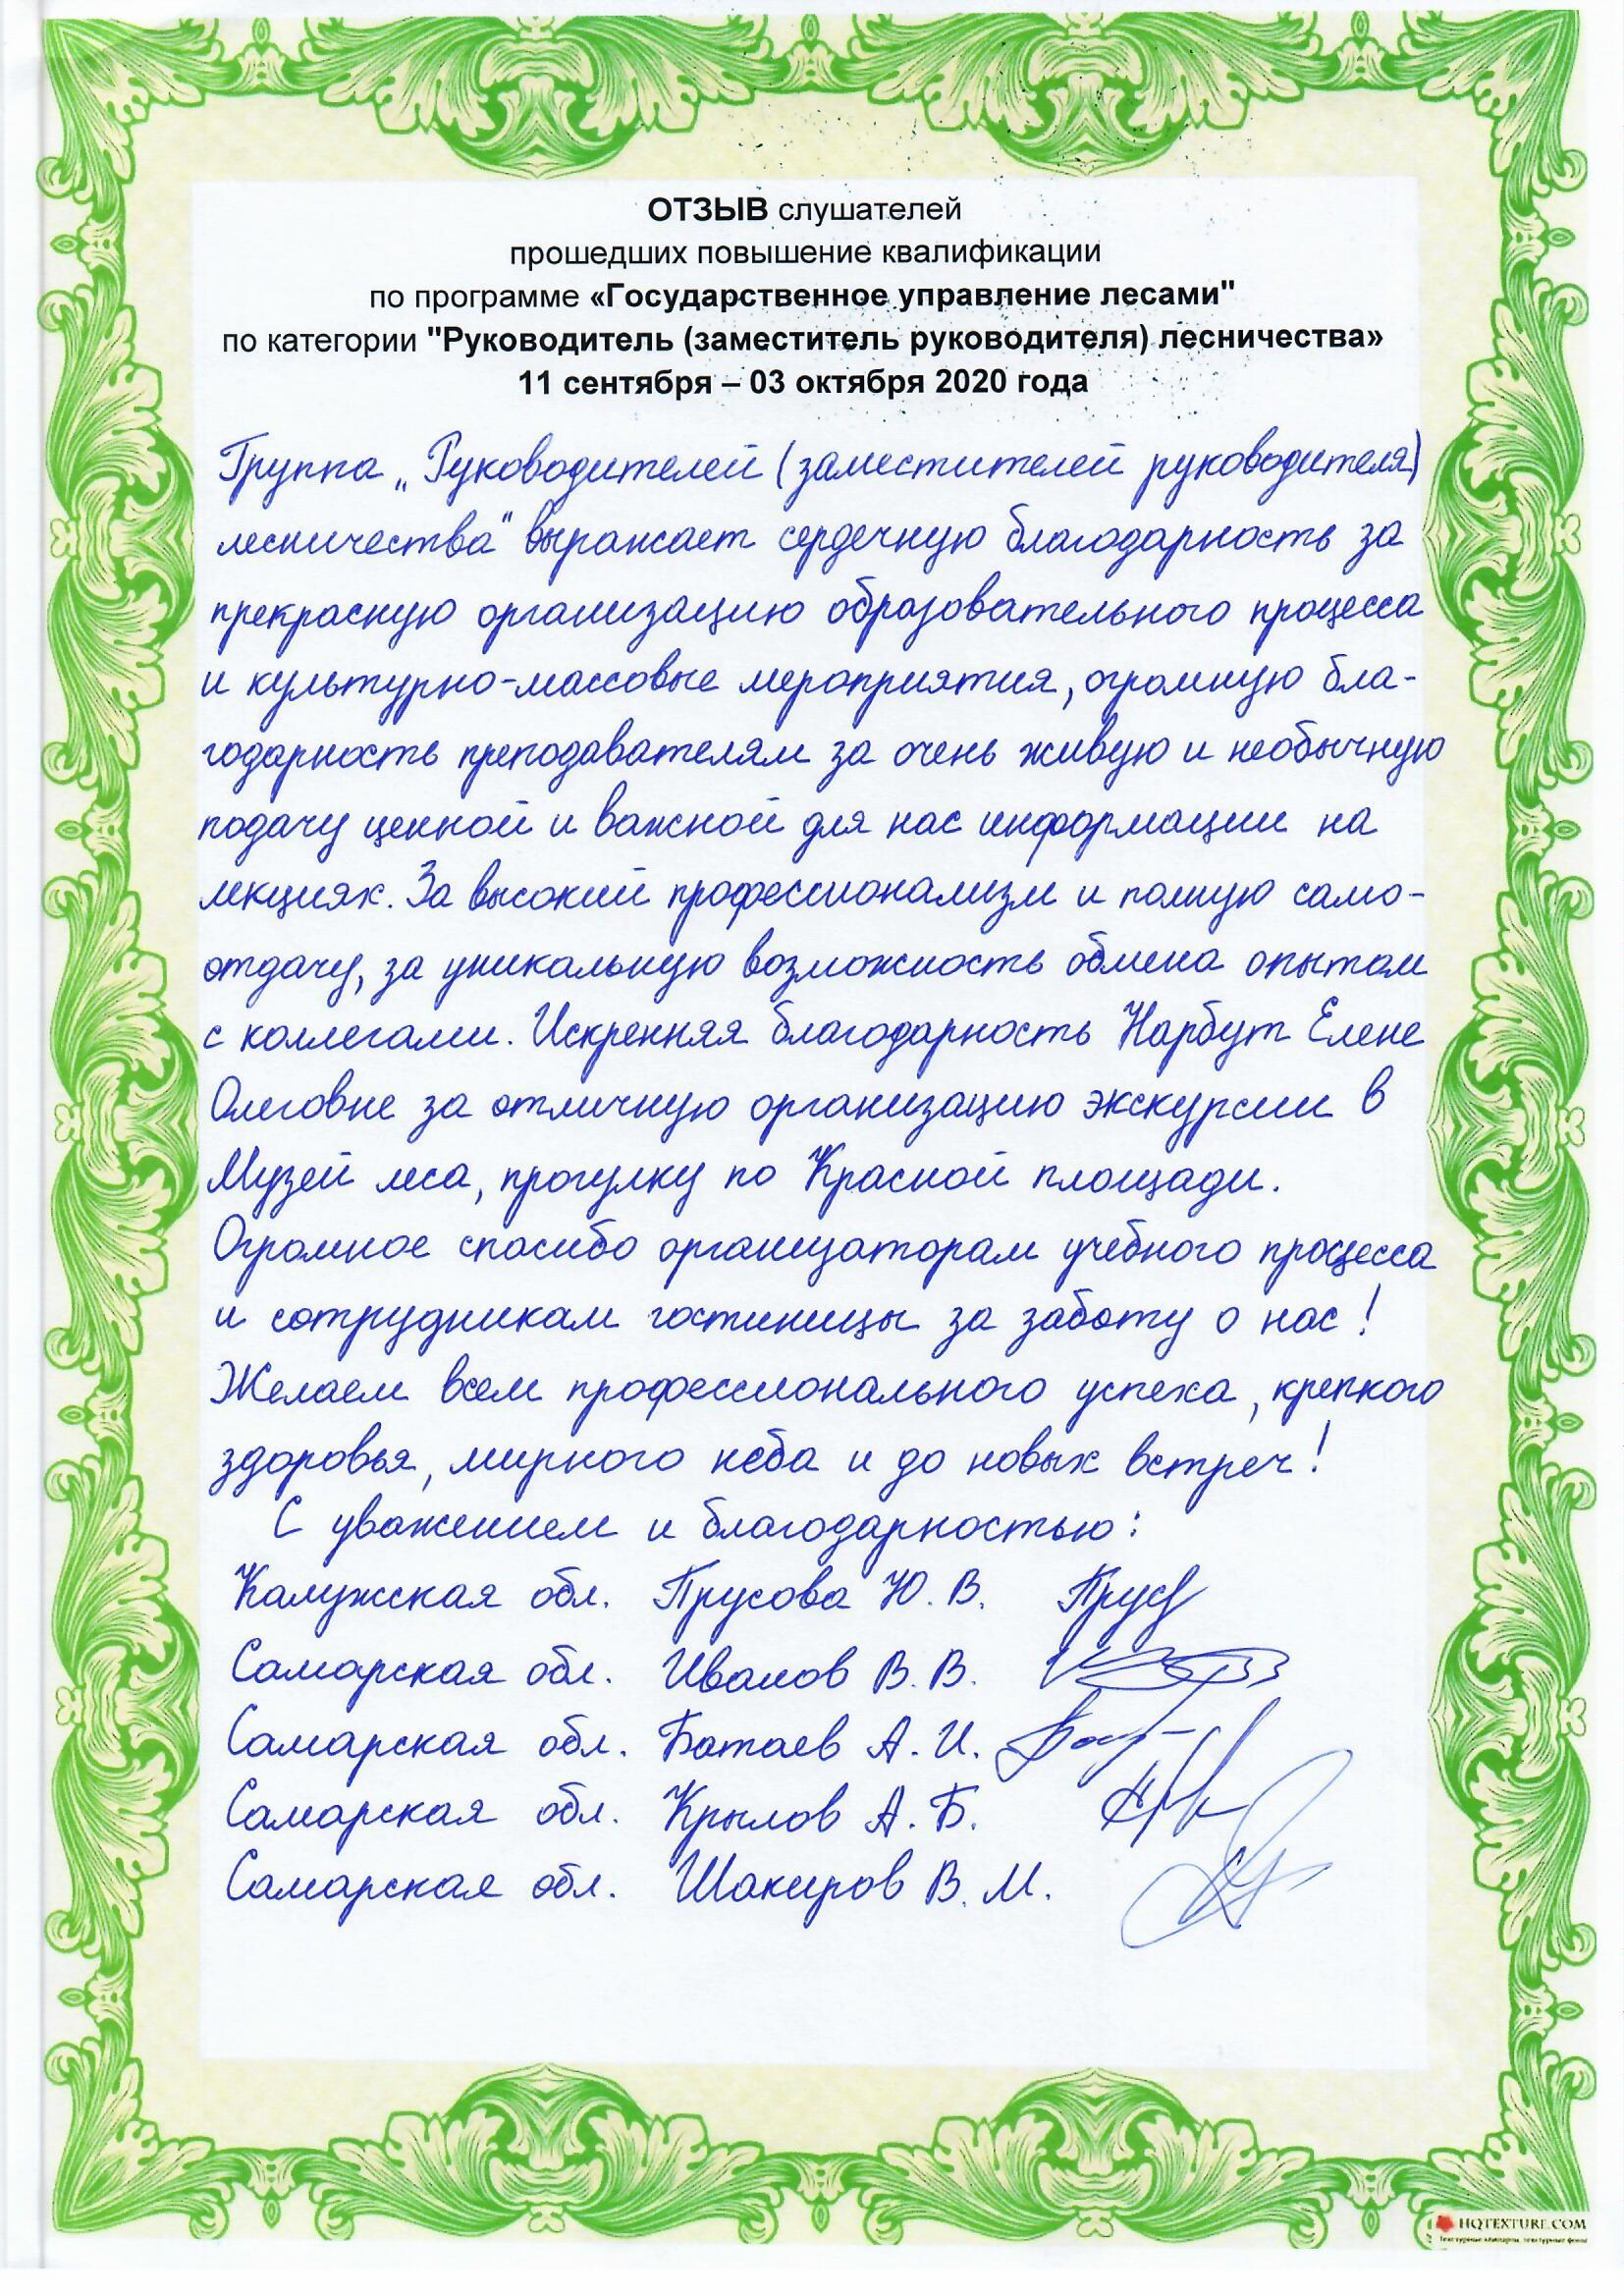 ОТЗЫВ слушателей
прошедших повышение квалификации
по программе «Государственное управление лесами"
по категории "Руководитель (заместитель руководителя) лесничества»
11 сентября – 03 октября 2020 года
Группа „Руководителей (заместителей руководителя)
лесничества" выражает сердечную благодарность за
прекрасную организацию образовательного процесса
и культурно-массовые мероприятия, огромную бла-
годарность преподавателям за очень живую и необычную
подачу ценной и важной для нас информации на
лекциях. За высокий профессионализм и полную само-
отдачу, за уникальную возможность обмена опытом
с коллегами. Искренняя благодарность Нарбут Елене
Олеговне за отличную организацию экскурсии в
Музей леса, прогулку по Красной площади.
Огромное спасибо организаторам учебного процесса
и сотрудникам гостиницы за заботу о нас!
Желаем всем профессионального успеха, крепкого
здоровья, мирного неба и до новых встреч!
С уважением и благодарностью:
Калужская обл. Прусова Ю.В.
Самарская обл. Иванов В.В.
Самарская обл. Батаев А.И.
Самарская обл. Крылов А.Б.
Самарская обл. Шакиров В.М.
HQTEXTURE.COM